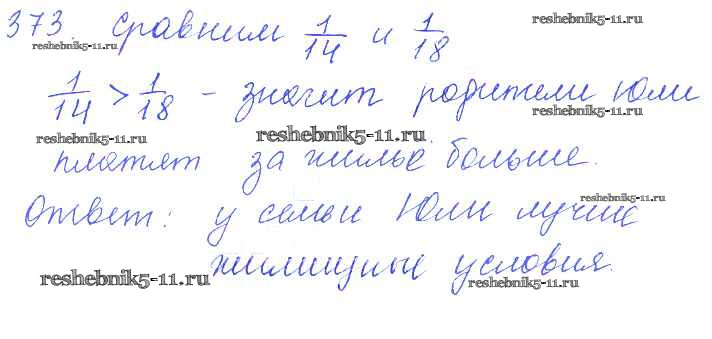 373. Сравним 1/14 и 1/18
reshebnik5-11.ru reshebnik5-11.ru reshebnik5-11.ru
1/14 > 1/18 - значит родители Юли
reshebnik5-11.ru reshebnik5-11.ru reshebnik5-11.ru
платят за жильё больше.
reshebnik5-11.ru
Ответ: у семьи Юли лучше
жилищные условия.
reshebnik5-11.ru reshebnik5-11.ru